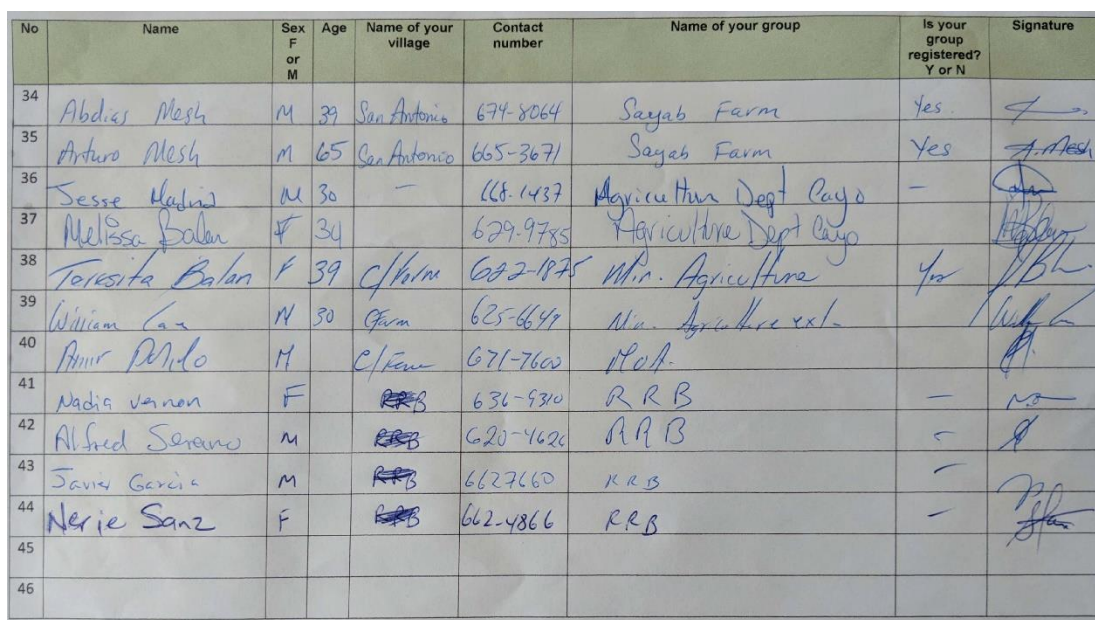 No Name Sex F or M Age Name of your village Contact number Name of your group Is your group registered? Y or N Signature
34 Abdias Mesh M 39 San Antonio 674-8064 Sayab Farm Yes.
35 Arturo Mesh M 65 San Antonio 665-3671 Sayab Farm Yes A. Mesh
36 Jesse Madrid M 30 — 668-1437 Agriculture Dept Cayo —
37 Melissa Balan F 34 629-9785 Agriculture Dept Cayo
38 Teresita Balan F 39 C/Farm 622-1875 Min. Agriculture Yes
39 William M 30 C/Farm 625-6649 Min. Agriculture ext.
40 Amir M C/Farm 671-7600 MoA.
41 Nadia Vernon F RRB 636-9310 RRB —
42 Alfred Serano M RRB 620-4626 RRB —
43 Javier Garcia M RRB 6627660 RRB —
44 Nerie Sanz F RRB 662-4866 RRB —
45
46